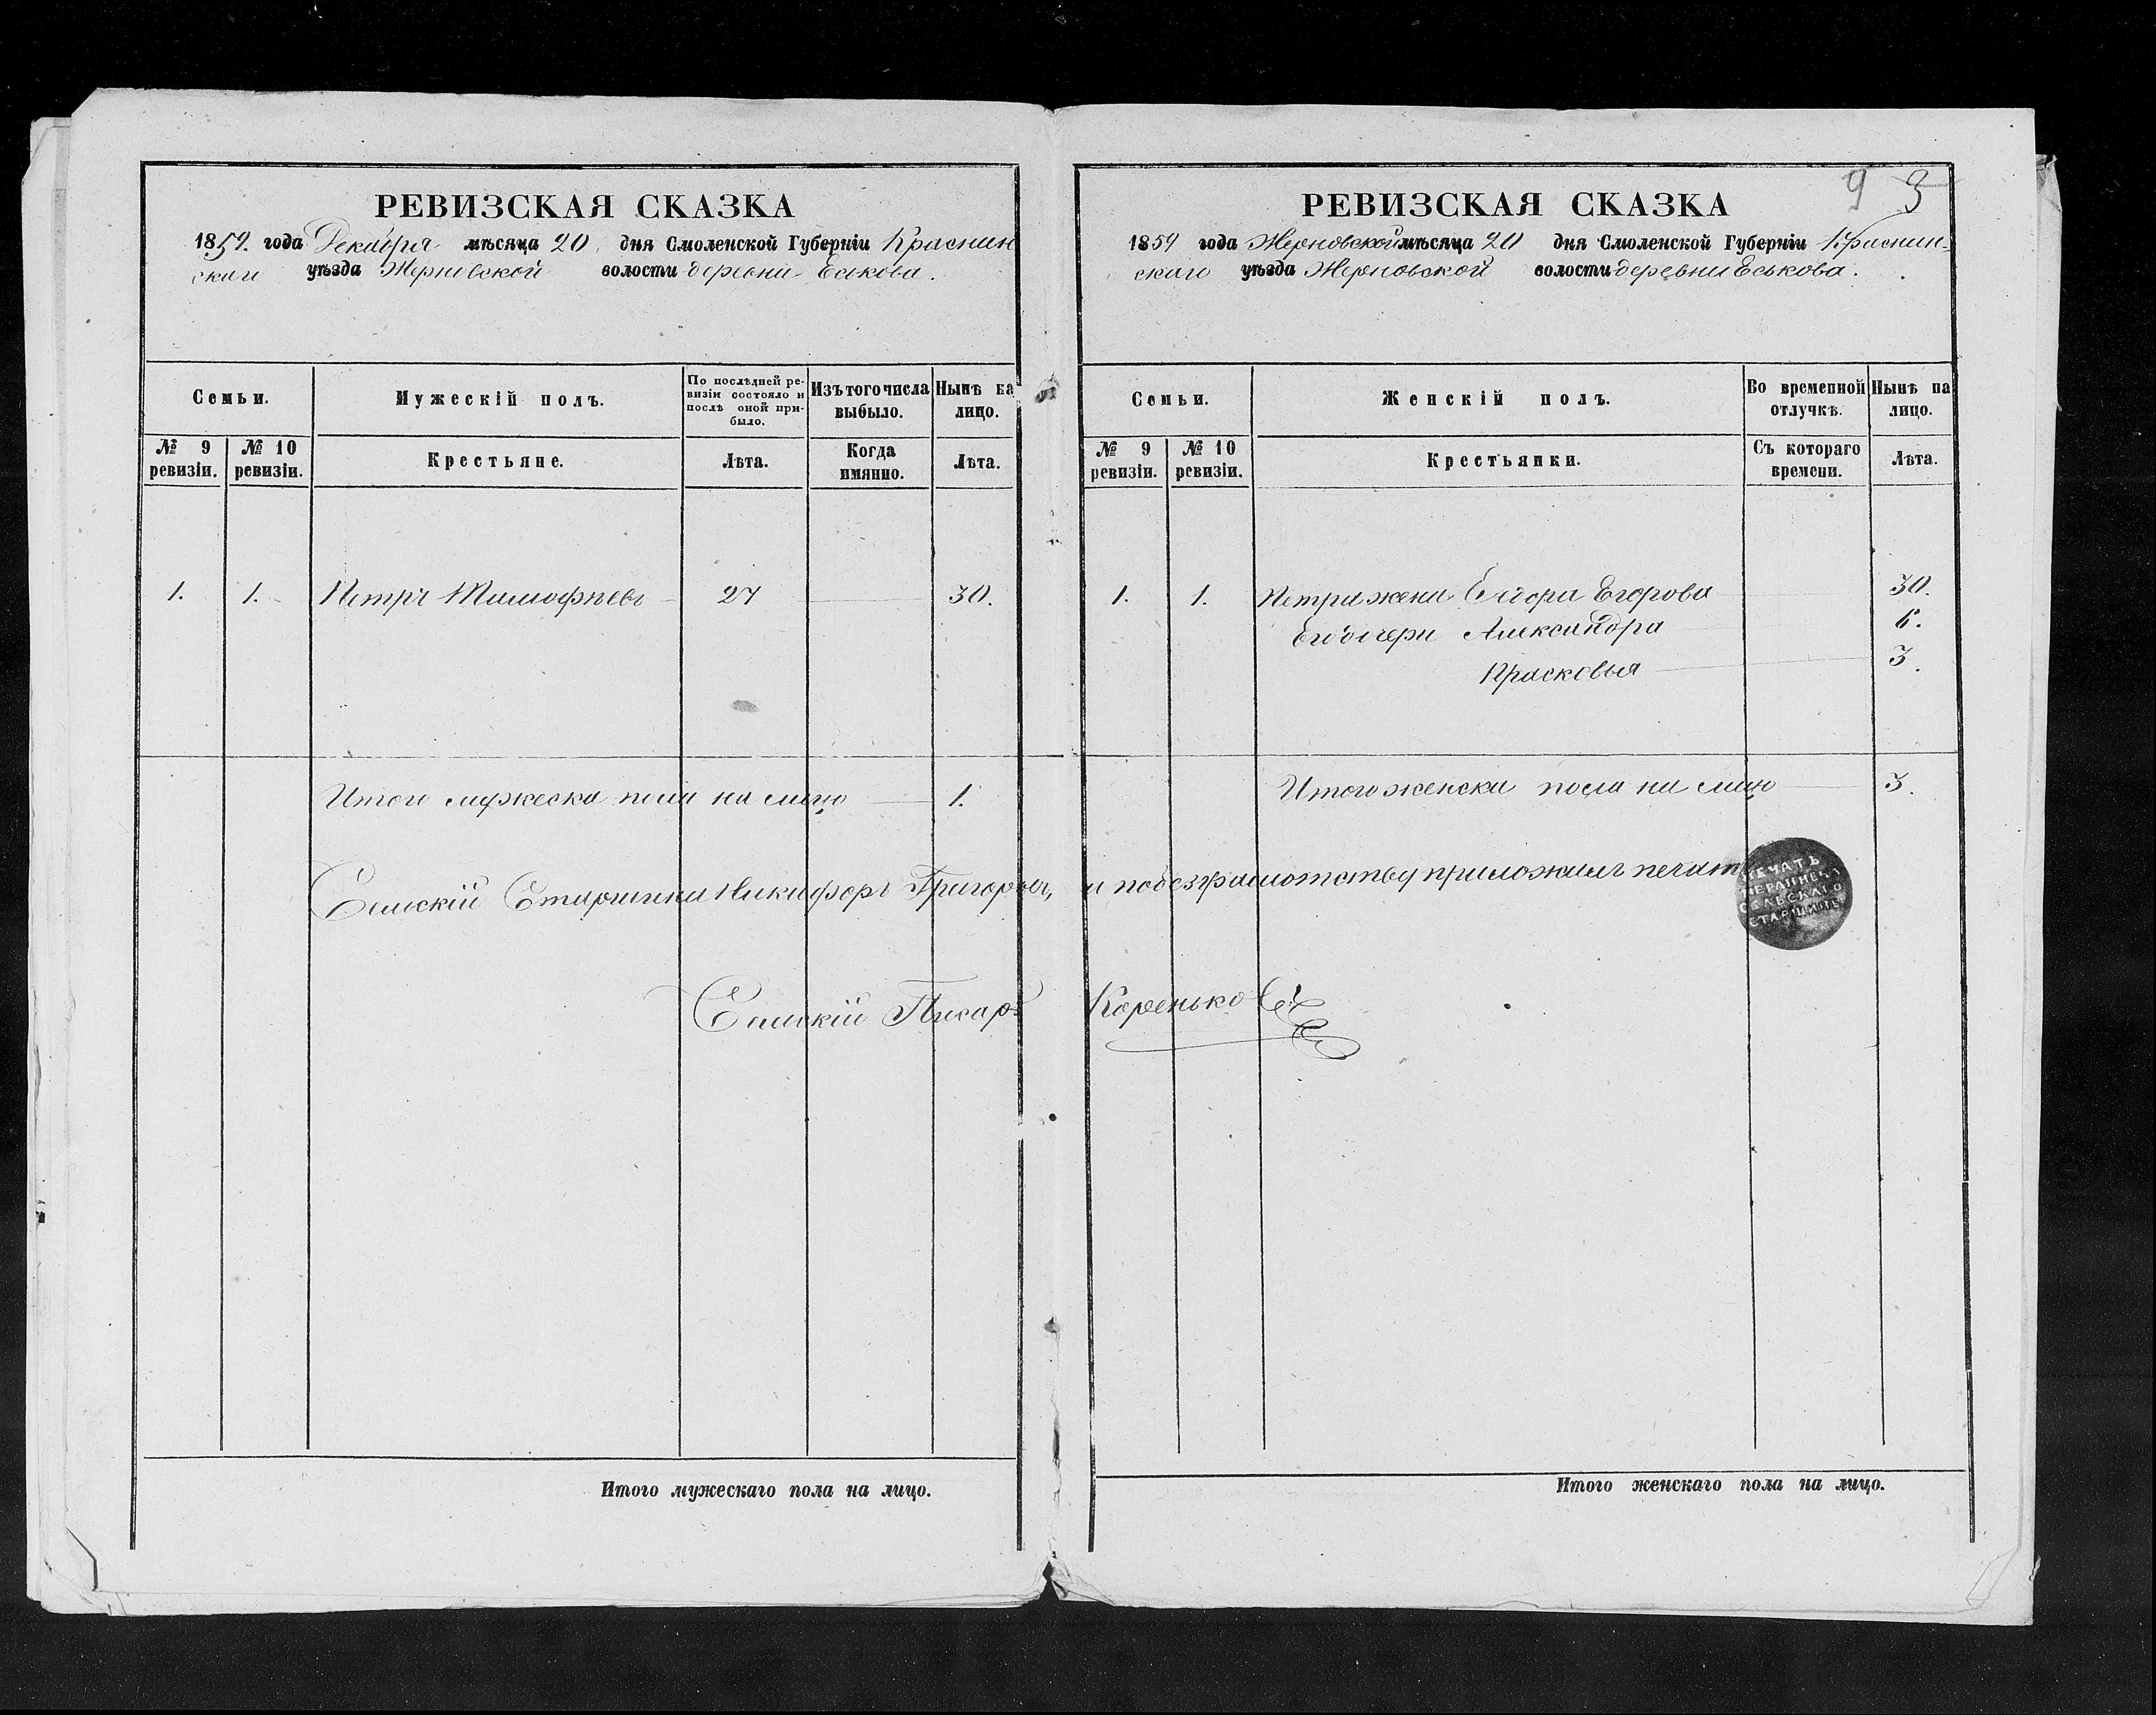 РЕВИЗСКАЯ СКАЗКА
1859. года Декабря мѣсяца 20 дня Смоленской Губерніи Краснин
скаго уѣзда Жерновской волости деревни Еськова.
Семьи.
Мужескій полъ.
По послѣдней ре-
визіи состояло и
послѣ оной при-
было.
Изъ того числа
выбыло.
Нынѣ на
лицо.
№ 9
ревизіи.
№ 10
ревизіи.
Крестьяне.
Лѣта.
Когда
имянно.
Лѣта.
1. 1. Петръ Тимофѣевъ 27 30.
Итого мужеска пола на лицо 1.
Итого мужескаго пола на лицо.
9 3
РЕВИЗСКАЯ СКАЗКА
1859 года Жерновской мѣсяца 20 дня Смоленской Губерніи Краснин-
скаго уѣзда Жерновской волости деревни Еськова.
Семьи.
Женскій полъ.
Во временной
отлучкѣ.
Нынѣ на
лицо.
№ 9
ревизіи.
№ 10
ревизіи.
Крестьянки.
Съ котораго
времени.
Лѣта.
1. 1. Петра жена Егорова 30.
Его дочери Александра 6.
Прасковья 3.
Итого женска пола на лицо 3.
Сельскій Старшина Никифоръ Григорьевъ, и по безграмотству приложилъ печать
ПЕЧАТЬ
СЕЛЬСКАГО
СТАРШИНЫ
Сельскій Писарь Кореньковъ
Итого женскаго пола на лицо.